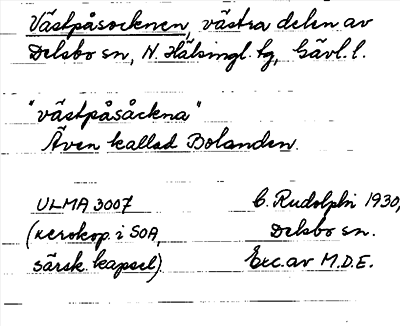 Västpåsocknen, västra delen av
Delsbo sn, N. Hälsingl. tg, Gävl. l.
"västpåsåckna"
Även kallad Bolanden.
ULMA 3007 C. Rudolphi 1930,
(xerokop. i SOA, Delsbo sn.
särsk. kapsel) Exc. av M.D.E.